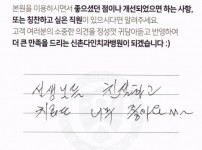 본원을 이용하시면서 좋으셨던 점이나 개선되었으면 하는 사항,
또는 칭찬하고 싶은 직원이 있으시다면 알려주세요.
고객 여러분의 소중한 의견을 적정껏 귀담아듣고 반영하여
더 큰 만족을 드리는 신촌다인치과병원이 되겠습니다 :)
선생님들 친절하고
치료도 너무 좋아요~~